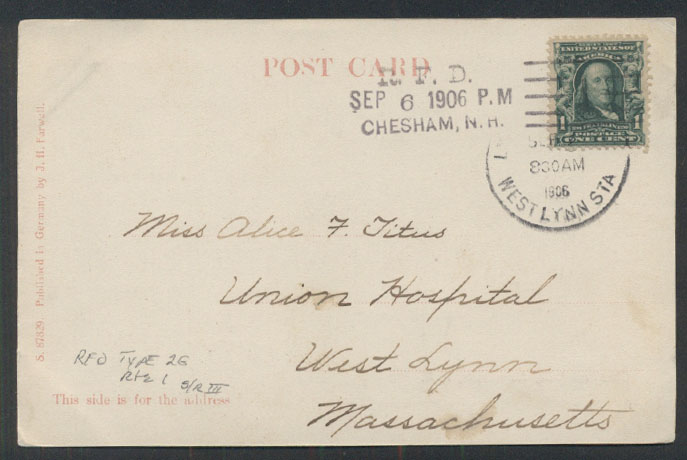 POST CARD
R. F. D.
SEP 6 1906 P.M
CHESHAM, N.H.
UNITED STATES OF
AMERICA
1 1
POSTAGE
ONE CENT
830AM
1906
WEST LYNN STA
Miss Alice F. Titus
Union Hospital
West Lynn
Massachusetts
S. 87329. Published in Germany by J. H. Farwell.
RFD TYPE 2G
Rte 1 S/R III
This side is for the address